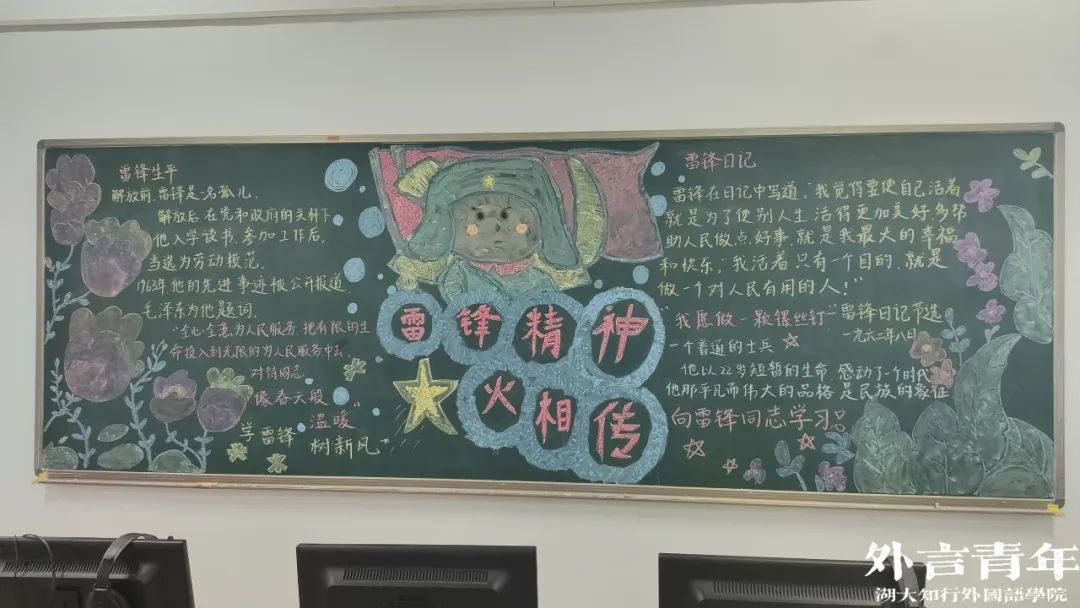 雷锋生平
解放前,雷锋是一名孤儿.
解放后,在党和政府的关怀下
他入学读书.参加工作后.
当选为劳动模范.
1963年他的先进事迹被公开报道
毛泽东为他题词.
"全心全意为人民服务.把有限的生
命投入到无限的为人民服务中去.
对待同志
像春天般
温暖
学雷锋
树新风"
雷锋精神
火相传
雷锋日记
雷锋在日记中写道,"我觉得要使自己活着
就是为了使别人生活得更加美好,多帮
助人民做点好事.就是我最大的幸福
和快乐."我活着只有一个目的.就是
做一个对人民有用的人!"
"我愿做一颗镙丝钉"
雷锋日记节选
一个普通的士兵
一九六二年八日
他以22岁短暂的生命.感动了一个时代
他那平凡而伟大的品格是民族的象征
向雷锋同志学习!
外言青年
湖大知行外國語學院